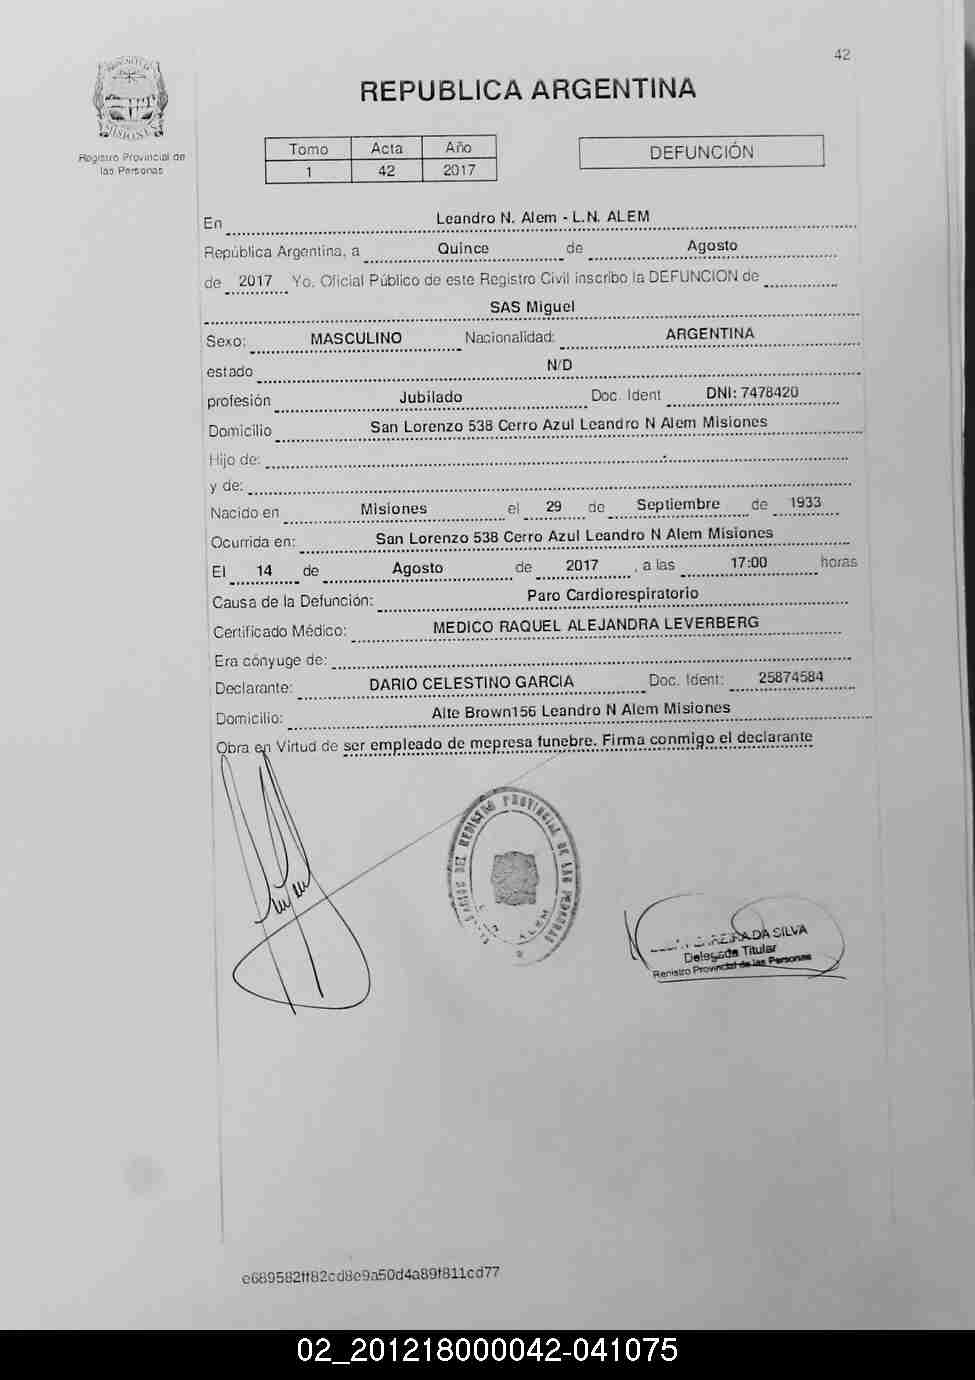 42
REPUBLICA ARGENTINA
Registro Provincial de
las Personas
Tomo Acta Año
1 42 2017
DEFUNCIÓN
En Leandro N. Alem - L.N. ALEM
República Argentina, a Quince de Agosto
de 2017 Yo, Oficial Público de este Registro Civil inscribo la DEFUNCION de
SAS Miguel
Sexo: MASCULINO Nacionalidad: ARGENTINA
estado N/D
profesión Jubilado Doc. Ident DNI: 7478420
Domicilio San Lorenzo 538 Cerro Azul Leandro N Alem Misiones
Hijo de:
y de:
Nacido en Misiones el 29 de Septiembre de 1933
Ocurrida en: San Lorenzo 538 Cerro Azul Leandro N Alem Misiones
El 14 de Agosto de 2017, a las 17:00 horas
Causa de la Defunción: Paro Cardiorespiratorio
Certificado Médico: MEDICO RAQUEL ALEJANDRA LEVERBERG
Era cónyuge de:
Declarante: DARIO CELESTINO GARCIA Doc. Ident: 25874584
Domicilio: Alte Brown156 Leandro N Alem Misiones
Obra en Virtud de ser empleado de mepresa funebre. Firma conmigo el declarante
DEL REGISTRO PROVINCIAL DE LAS PERSONAS
ALEM
DA SILVA
Delegada Titular
Registro Provincial de las Personas
e689582ff82cd8e9a50d4a89f811cd77
02_201218000042-041075